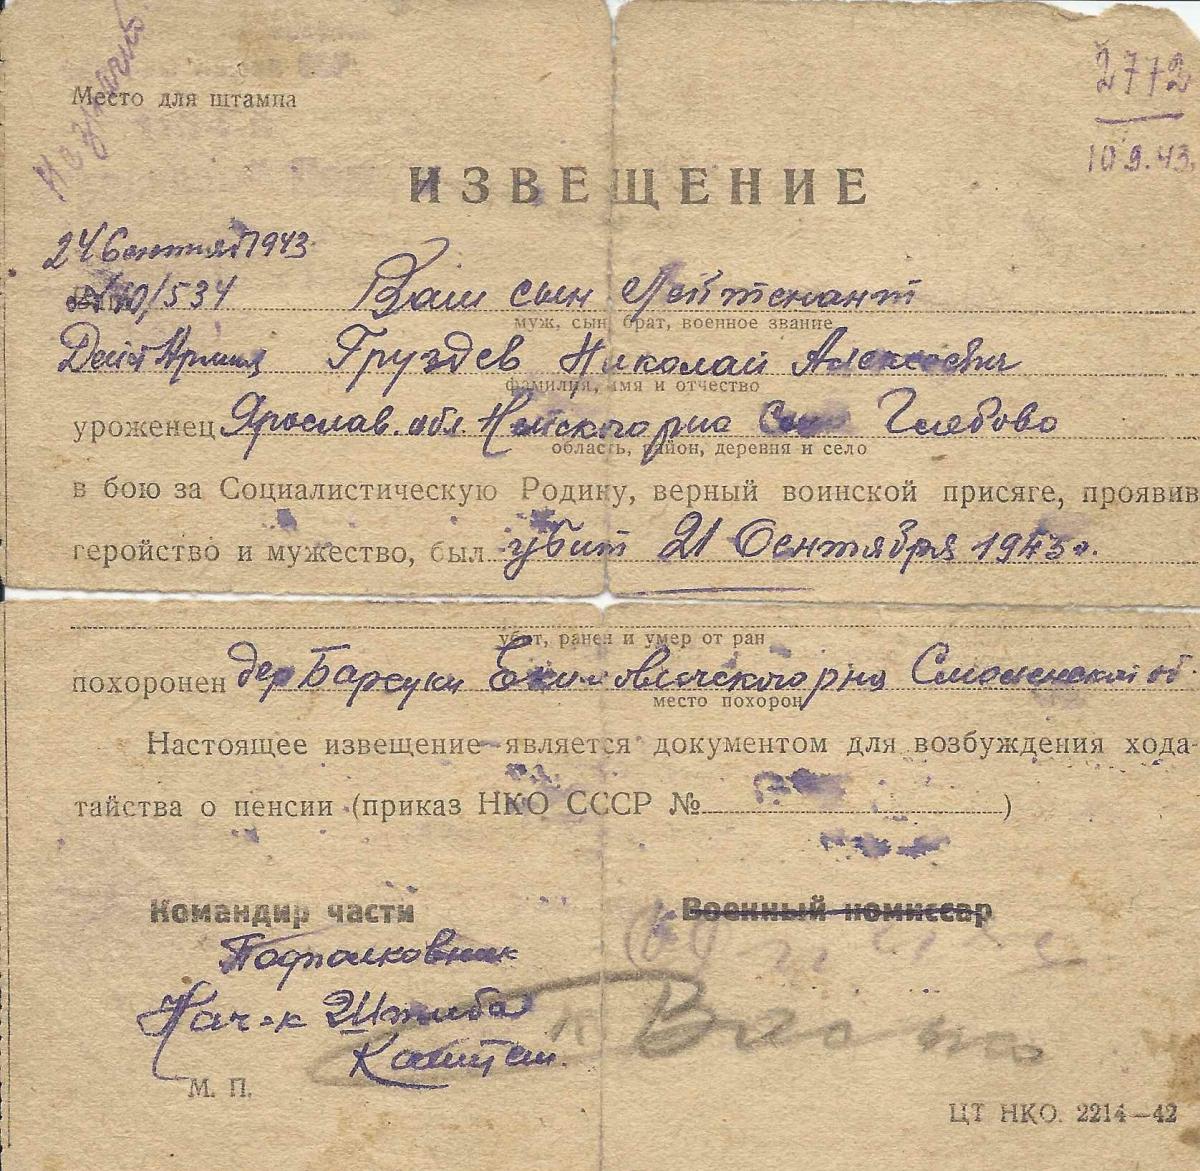 Место для штампа
2772
10.9.43.
ИЗВЕЩЕНИЕ
24 Сентября 1943
/534 Ваш сын Лейтенант
муж, сын, брат, военное звание
Дейст Армия Груздев Николай Алексеевич
фамилия, имя и отчество
уроженец Ярослав. обл. рна Глебово
область, район, деревня и село
в бою за Социалистическую Родину, верный воинской присяге, проявив
геройство и мужество, был убит 21 Сентября 1943 г.
убит, ранен и умер от ран
похоронен дер Барсуки Екимовичского рна Смоленской об
место похорон
Настоящее извещение является документом для возбуждения хода-
тайства о пенсии (приказ НКО СССР № )
Командир части Военный комиссар
Подполковник
Нач-к Штаба
Капитан.
М. П.
ЦТ НКО. 2214—42